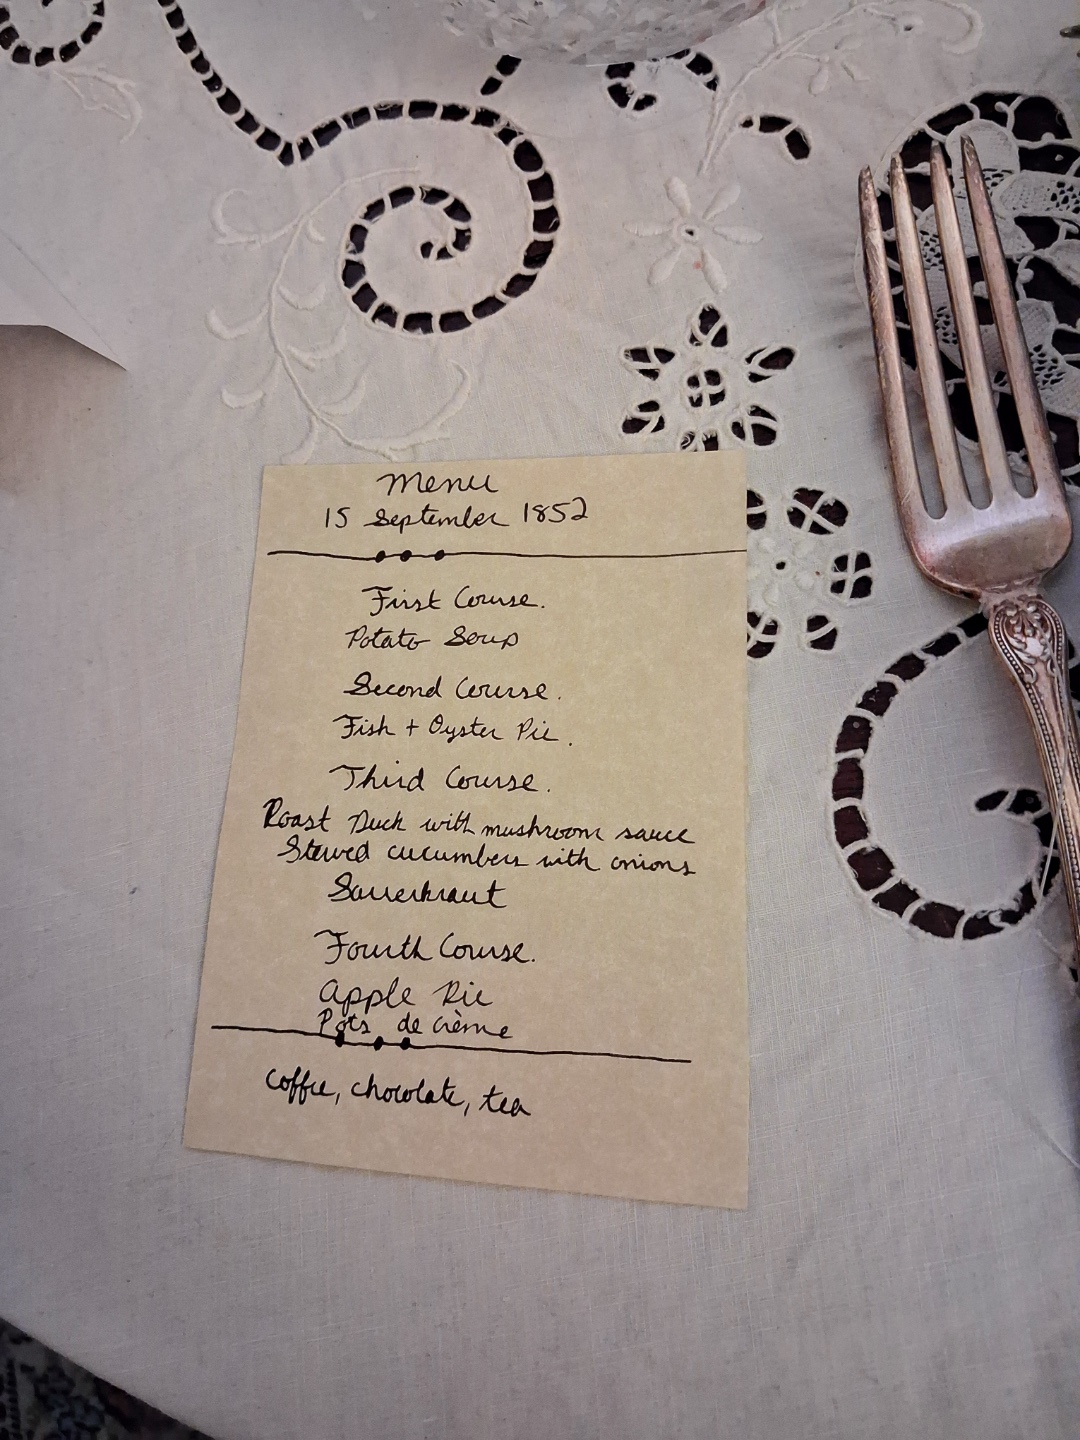 Menu
15 September 1852
First Course.
Potato Soup
Second Course.
Fish + Oyster Pie.
Third Course.
Roast Duck with mushroom sauce
Stewed cucumbers with onions
Sauerkraut
Fourth Course.
Apple Pie
Pots de crème
coffee, chocolate, tea